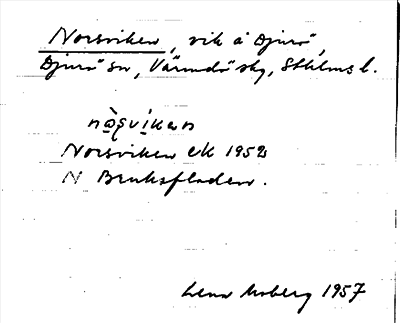 Norsviken, vik å Djurö,
Djurö sn, Värmdö skg, Sthlms l.
nạ̀ṣvikan
Norsviken EK 1952
N Bruksfladen.
Lena Moberg 1957